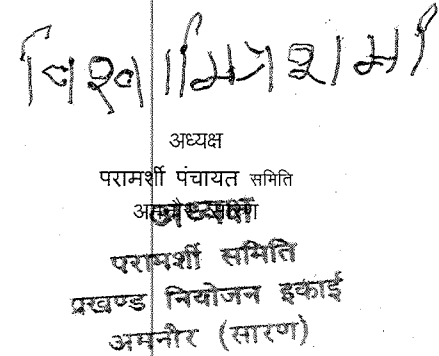 विश्वामित्र शर्मा
अध्यक्ष
परामर्शी पंचायत समिति
अमनौर सारण
अध्यक्ष
परामर्शी समिति
प्रखण्ड नियोजन इकाई
अमनौर (सारण)